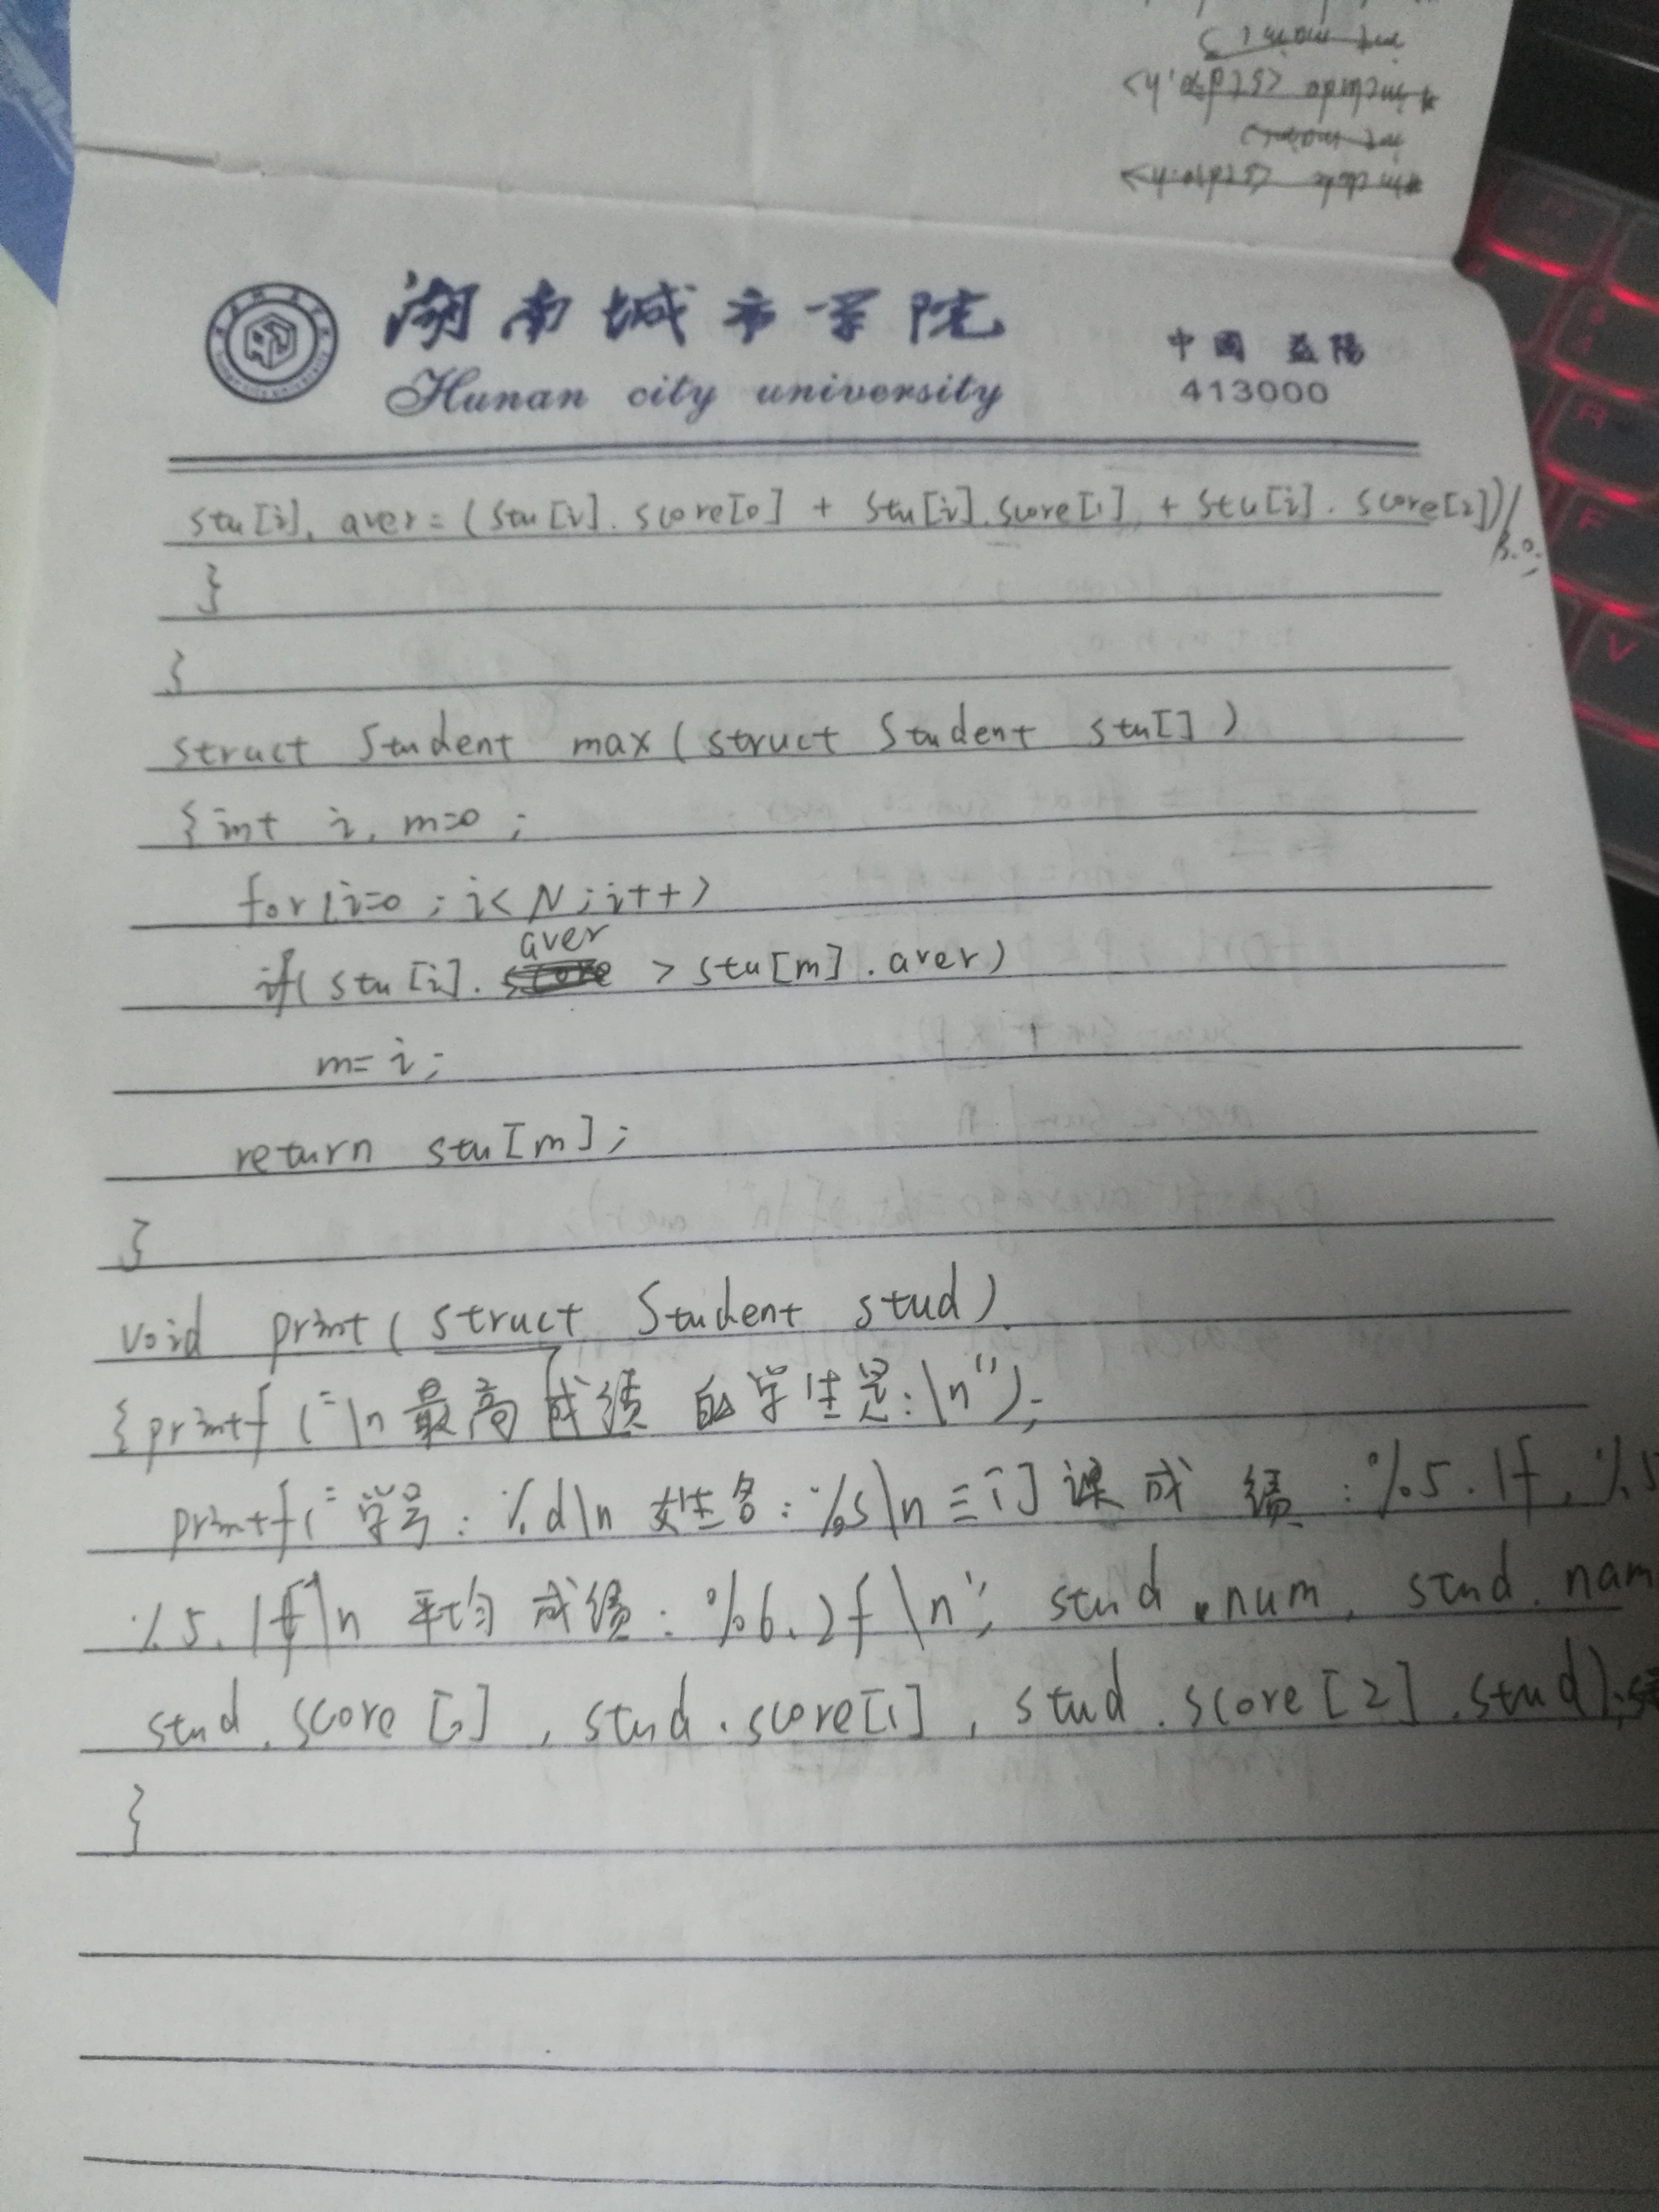 int main()
#include <stdio.h>
int main()
#include <stdio.h>
湖南城市学院
Hunan city university
中国 益陽
413000
stu[i]. aver = (stu[i]. score[0] + stu[i].score[1] + stu[i]. score[2])/
3.0;
}
}
struct Student max(struct Student stu[])
{int i, m=0;
for(i=0; i<N; i++)
aver
if(stu[i]. score > stu[m]. aver)
m=i;
return stu[m];
}
void print(struct Student stud)
{printf("\n最高成绩的学生是:\n");
printf("学号: %d\n姓名: %s\n三门课成绩: %5.1f, %5
%5.1f\n平均成绩: %6.2f\n", stud.num, stud.nam
stud.score[0], stud.score[1], stud.score[2].stud);
}